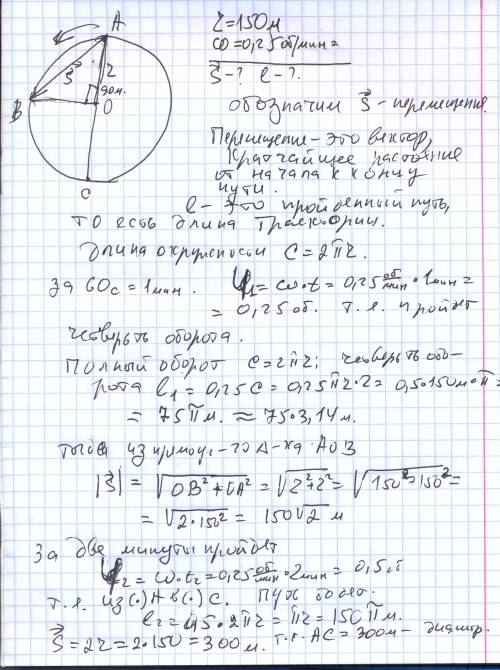 A
B
C
O
S⃗
r
90м.
r = 150м
ω = 0,25 об/мин =
S⃗ - ? l - ?.
обозначим S⃗ - перемещение.
Перемещение - это вектор,
кратчайшее растояние
от начала к концу
пути.
l - это пройденный путь,
то есть длина траектории.
Длина окружности C = 2πr.
За 60с = 1мин. φ₁ = ω·t = 0,25 об/мин · 1мин =
= 0,25 об. т.е. пройдет
четверть оборота.
Полный оборот C = 2πr; четверть обо-
рота l₁ = 0,25C = 0,25πr·2 = 0,5·150м·π =
= 75πм. ≈ 75·3,14м.
тогда из прямоуг-го Δ-ка AOB
|S⃗| = √(OB²+OA²) = √(r²+r²) = √(150²+150²) =
= √(2·150²) = 150√2 м
За две минуты пройдет
φ₂ = ω·t₂ = 0,25 об/мин · 2мин = 0,5 об
т.е. из (·) A в (·) C. Путь
l₂ = 0,5·2πr = πr = 150πм.
S⃗ = 2r = 2·150 = 300м. т.к. AC = 300м - диаметр.